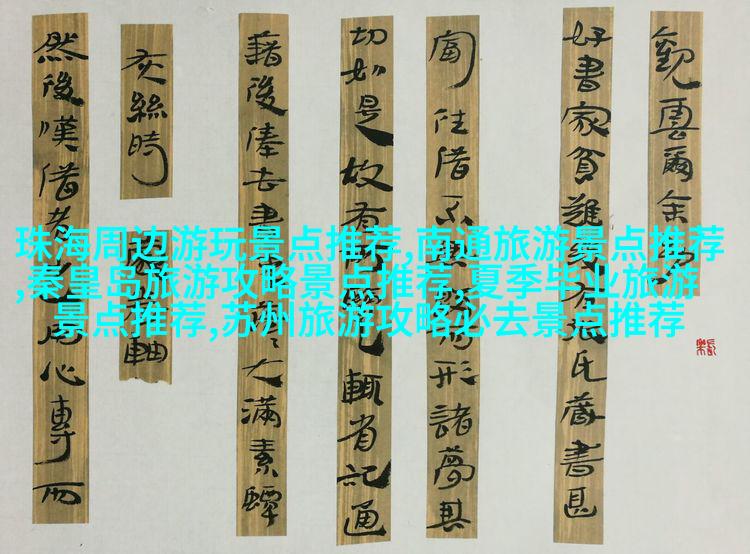 觀雲爾余
好書家貧難有張氏藏書甚
富往借不與歸而形諸夢其
切如是故有所覽輒省記通
藉後俸去書大滿素蟫
灰絲時
軸
然後嘆借者用心專而
珠海周边游玩景点推荐,南通旅游景点推荐
,秦皇岛旅游攻略景点推荐,夏季毕业旅游
景点推荐,苏州旅游攻略必去景点推荐